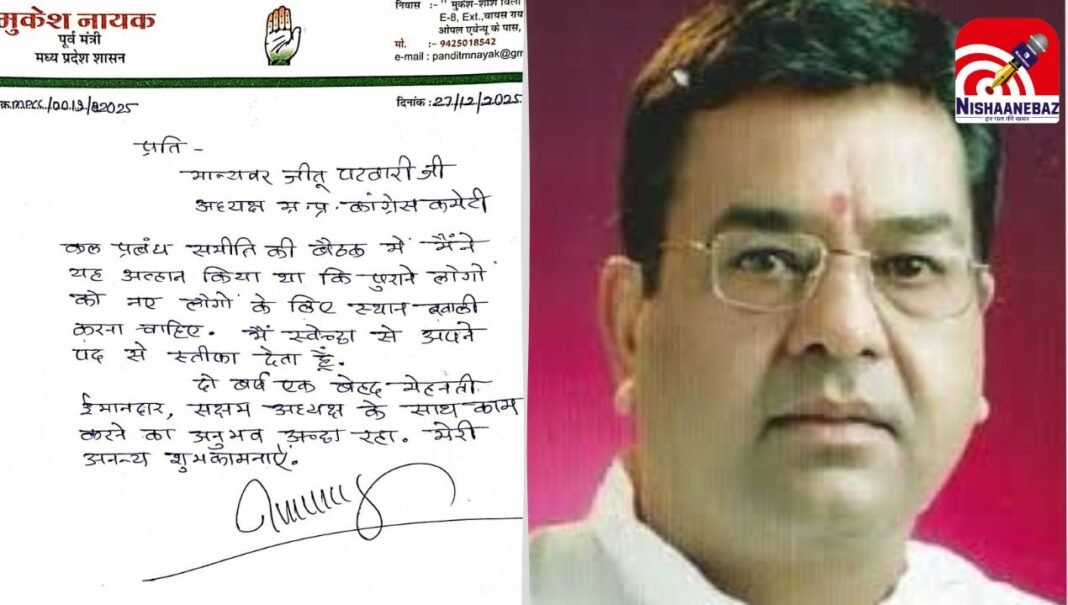 मुकेश नायक
पूर्व मंत्री
मध्य प्रदेश शासन
E-8, Ext.,
ओपल एवेन्यू के पास,
मो. :- 9425018542
e-mail : panditmnayak@gm
दिनांक : 27/12/2025
प्रति -
मान्यवर जीतू पटवारी जी
अध्यक्ष म.प्र. कांग्रेस कमेटी
कल प्रबंध समीति की बैठक में मैंने
यह अव्हान किया था कि पुराने लोगों
को नए लोगों के लिए स्थान खाली
करना चाहिए. मैं स्वेच्छा से अपने
पद से स्तीफा देता हूँ.
दो वर्ष एक बेहद मेहनती
ईमानदार, सक्षम अध्यक्ष के साथ काम
करने का अनुभव अच्छा रहा. मेरी
अनन्य शुभकामनाएं.
NISHAANEBAZ
हर पल की खबर